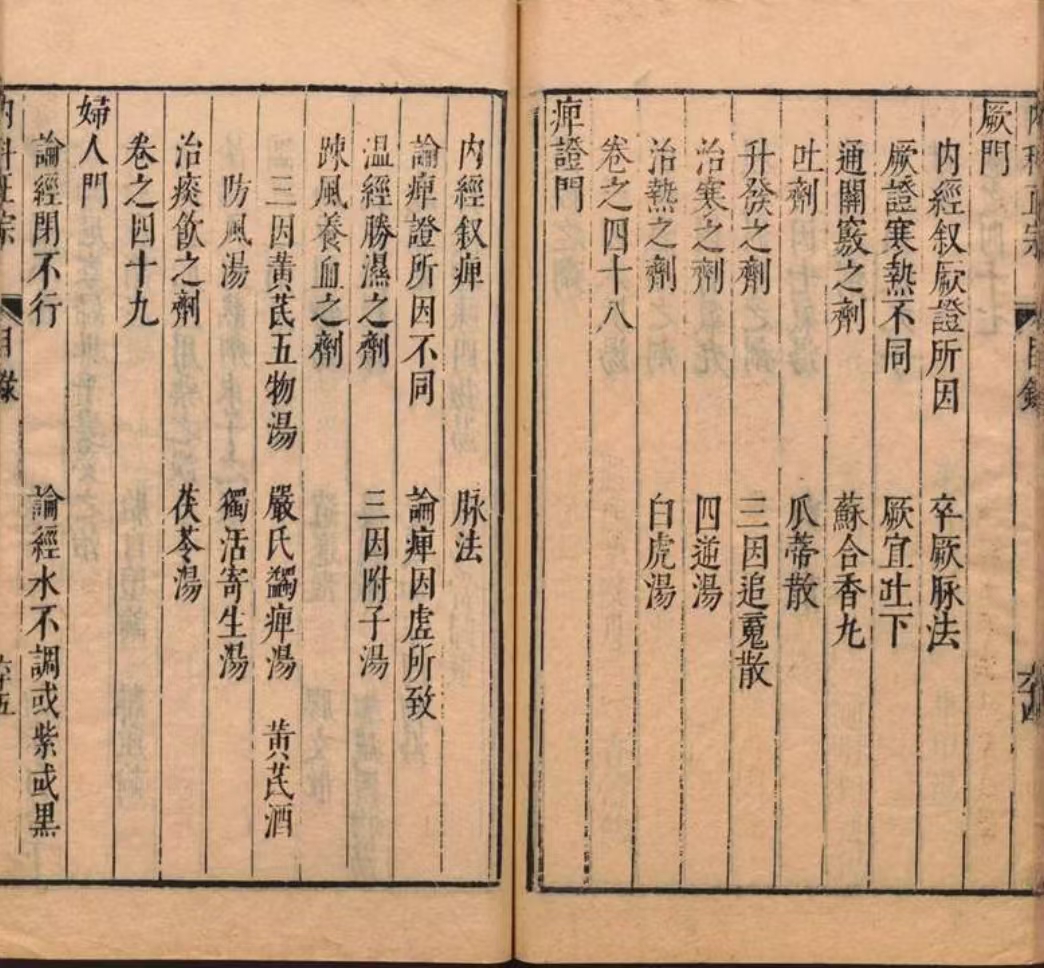 內科正宗 目錄 六十四
厥門
內經叙厥證所因 卒厥脉法
厥證寒熱不同 厥宜吐下
通關竅之劑 蘇合香丸
吐劑 瓜蒂散
升發之劑 三因追䰟散
治寒之劑 四逆湯
治熱之劑 白虎湯
卷之四十八
痺證門
內經叙痺 脉法
論痺證所因不同 論痺因虛所致
温經勝濕之劑 三因附子湯
踈風養血之劑
三因黃芪五物湯 嚴氏蠲痺湯 黃芪酒
防風湯 獨活寄生湯
治痰飲之劑 茯苓湯
卷之四十九
婦人門
論經閉不行 論經水不調或紫或黑
內科正宗 目錄 六十五